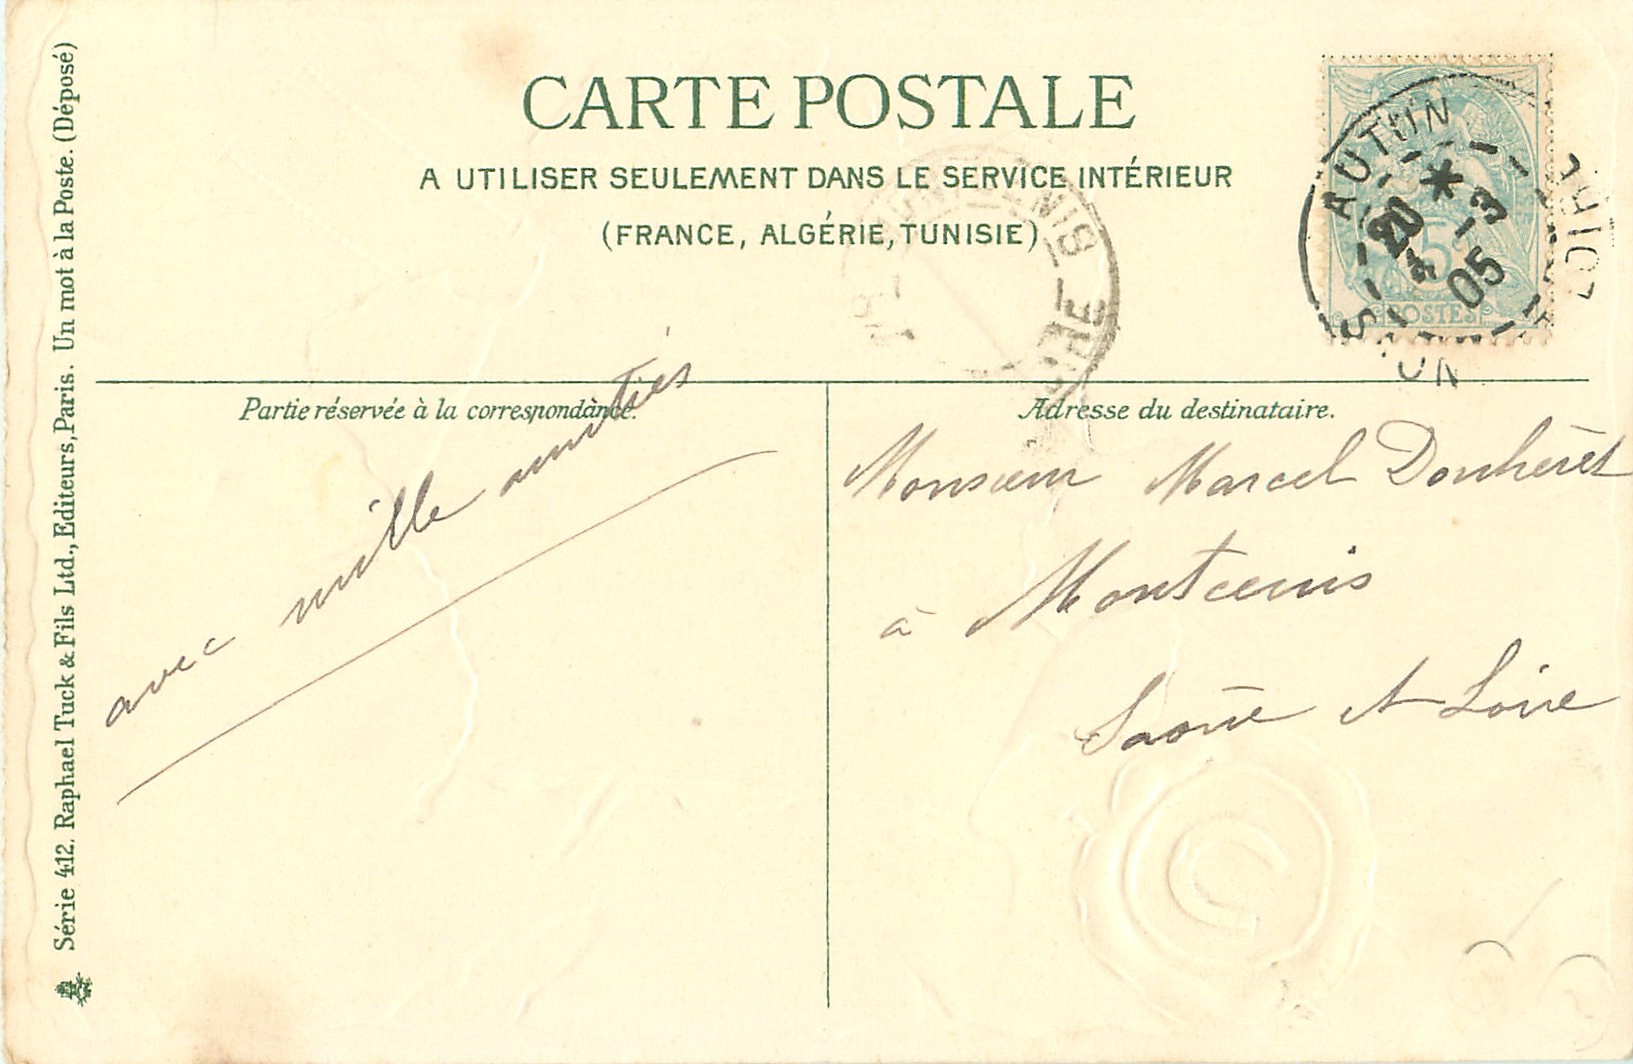 CARTE POSTALE
A UTILISER SEULEMENT DANS LE SERVICE INTÉRIEUR
(FRANCE, ALGÉRIE, TUNISIE)
AUTUN
20
3 -3
05
LOIRE
5
POSTES
Partie réservée à la correspondance.
avec mille amitiés
Adresse du destinataire.
Monsieur Marcel
à Montcenis
Saône et Loire
Série 412. Raphael Tuck & Fils Ltd., Editeurs, Paris. Un mot à la Poste. (Déposé)